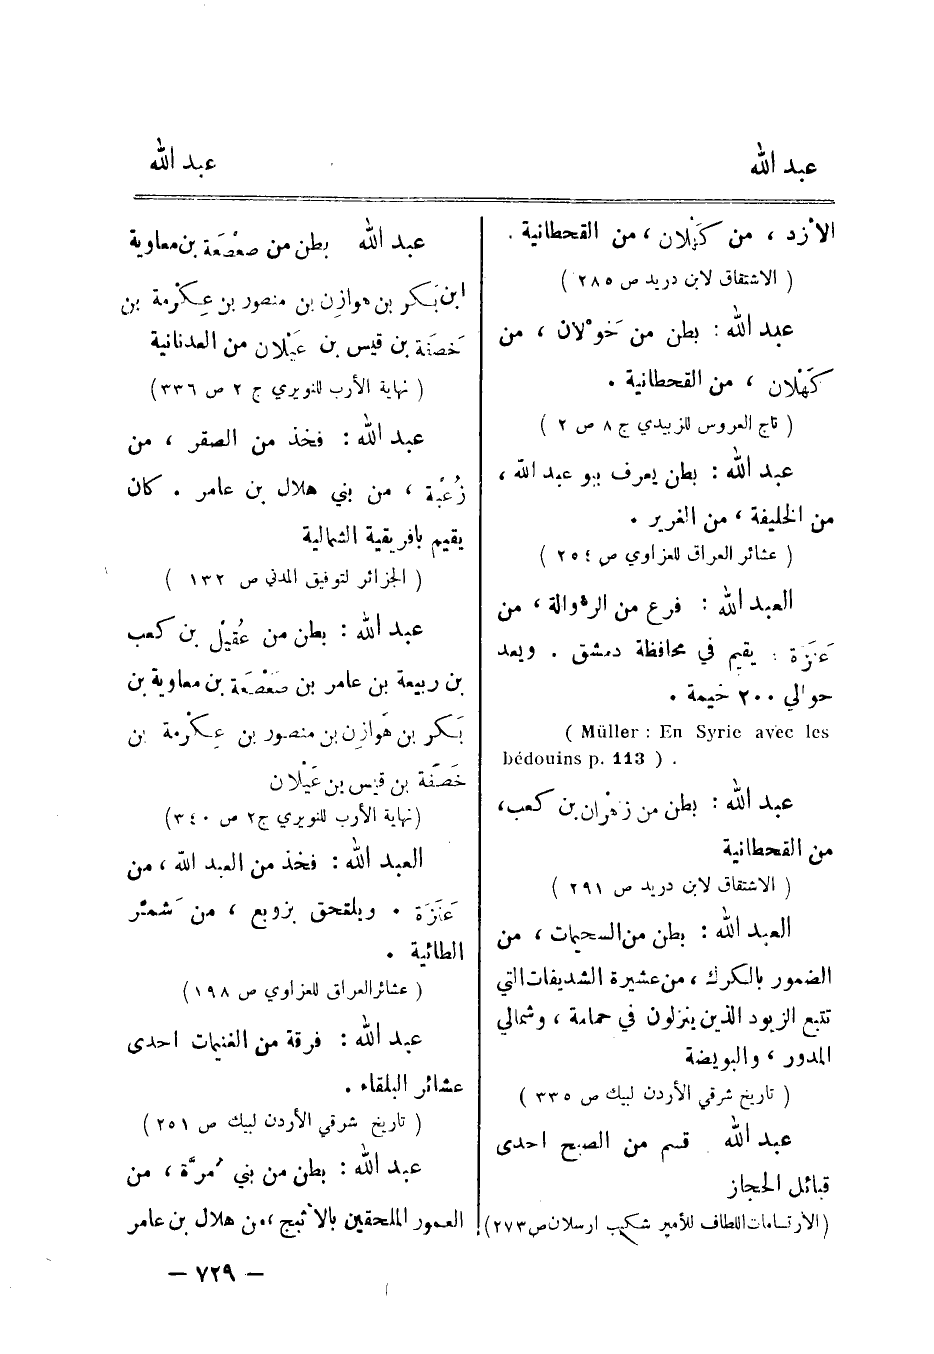 عبد الله
عبد الله
الأزد ، من كَهْلان ، من القحطانية .
( الاشتقاق لابن دريد ص ٢٨٥ )
عبد الله : بطن من خَوْلان ، من
كَهْلان ، من القحطانية .
( تاج العروس للزبيدي ج ٨ ص ٢ )
عبد الله : بطن يعرف ببو عبد الله ،
من الخليفة ، من الغرير .
( عشائر العراق للعزاوي ص ٢٥٤ )
العبد الله : فرع من الرؤالة ، من
عَنَزَة . يقيم في محافظة دمشق . ويعد
حوالي ٢٠٠ خيمة .
( Müller : En Syrie avec les
bédouins p. 113 ) .
عبد الله : بطن من زهْران بن كعب ،
من القحطانية
( الاشتقاق لابن دريد ص ٢٩١ )
العبد الله : بطن من السحيات ، من
الضمور بالكرك ، من عشيرة الشديفات التي
تتبع الزبود الذين ينزلون في حمامة ، وشمالي
المدور ، والبويضة
( تاريخ شرقي الأردن لبيك ص ٣٣٥ )
عبد الله . قسم من الصبح احدى
قبائل الحجاز
(الارتسامات اللطاف للأمير شكيب ارسلان ص ٢٧٣)
عبد الله بطن من صعْصَعَة بن معاوية
ابن بَكر بن هوازِن بن منصور بن عِكْرمة بن
خَصَفَة بن قيس بن عَيْلان من العدنانية
( نهاية الأرب للنويري ج ٢ ص ٣٣٦)
عبد الله : فخذ من الصقر ، من
زُغْبة ، من بني هلال بن عامر . كان
يقيم بافريقية الشمالية
( الجزائر لتوفيق المدني ص ١٣٢ )
عبد الله : بطن من عُقَيْل بن كعب
بن ربيعة بن عامر بن صَعْصَعَة بن معاوية بن
بَكر بن هَوازِن بن منصور بن عِكْرمة بن
خَصَفَة بن قيس بن عَيْلان
(نهاية الأرب للنويري ج٢ ص ٣٤٠)
العبد الله : فخذ من العبد الله ، من
عَنَزَة . ويلتحق بزوبع ، من شَمَّر
الطائية .
( عشائر العراق للعزاوي ص ١٩٨)
عبد الله : فرقة من الغنيمات احدى
عشائر البلقاء .
( تاريخ شرقي الأردن لبيك ص ٢٥١ )
عبد الله : بطن من بني مُرَّة ، من
العمور الملحقين بالأثبج ، من هلال بن عامر
— ٧٢٩ —